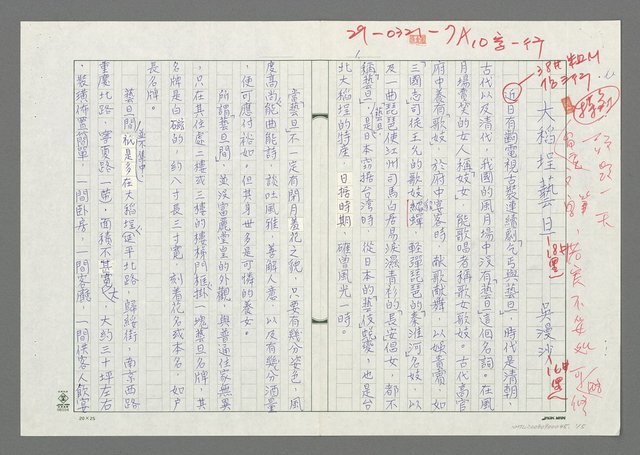 29-0321-7A
大稻埕藝旦 吳漫沙
近日有齣電視古裝連續劇「乞丐與藝旦」,時代是清朝,
古代以及清代,我國的風月場中沒有「藝旦」這個名詞。在風
月場賣笑的女人稱「妓女」,能歌唱者稱歌女歌妓。古代高官
府中養有「歌妓」,於府中宴客時,獻歌獻舞,以娛貴賓,如
「三國志」司徒王允的歌妓貂蟬,輕彈琵琶的「秦淮河」名妓,以
及一曲琵琶使江州司馬白居易淚濕青衫的「長安倡女」,都不
稱「藝旦」。藝旦是日本竊據台灣時,從日本的「藝伎」蛻變,也是台
北大稻埕的特產,日據時期,確曾風光一時。
當「藝旦」不一定有閉月羞花之貌,只要有幾分姿色,風
度高尚能曲能詩,談吐風雅,善解人意,以及有幾分酒量
,便可應付裕如。但其身世多是可憐的養女。
所謂「藝旦間」,並沒富麗堂皇的外觀,與普通住家無異
,只在其住處二樓或三樓的樓梯門框掛一塊藝旦名牌,其
名牌是白磁的,約八寸長三寸寬,刻着花名或本名,如戶
長名牌。
藝旦間並不集中,祇是多在大稻埕延平北路、歸綏街,南京西路
重慶北路、寧夏路一帶,面積不甚寬大,大約三十坪左右
,裝璜佈置簡單,一間臥房,一間客廳,一間供客人飲宴
20×25